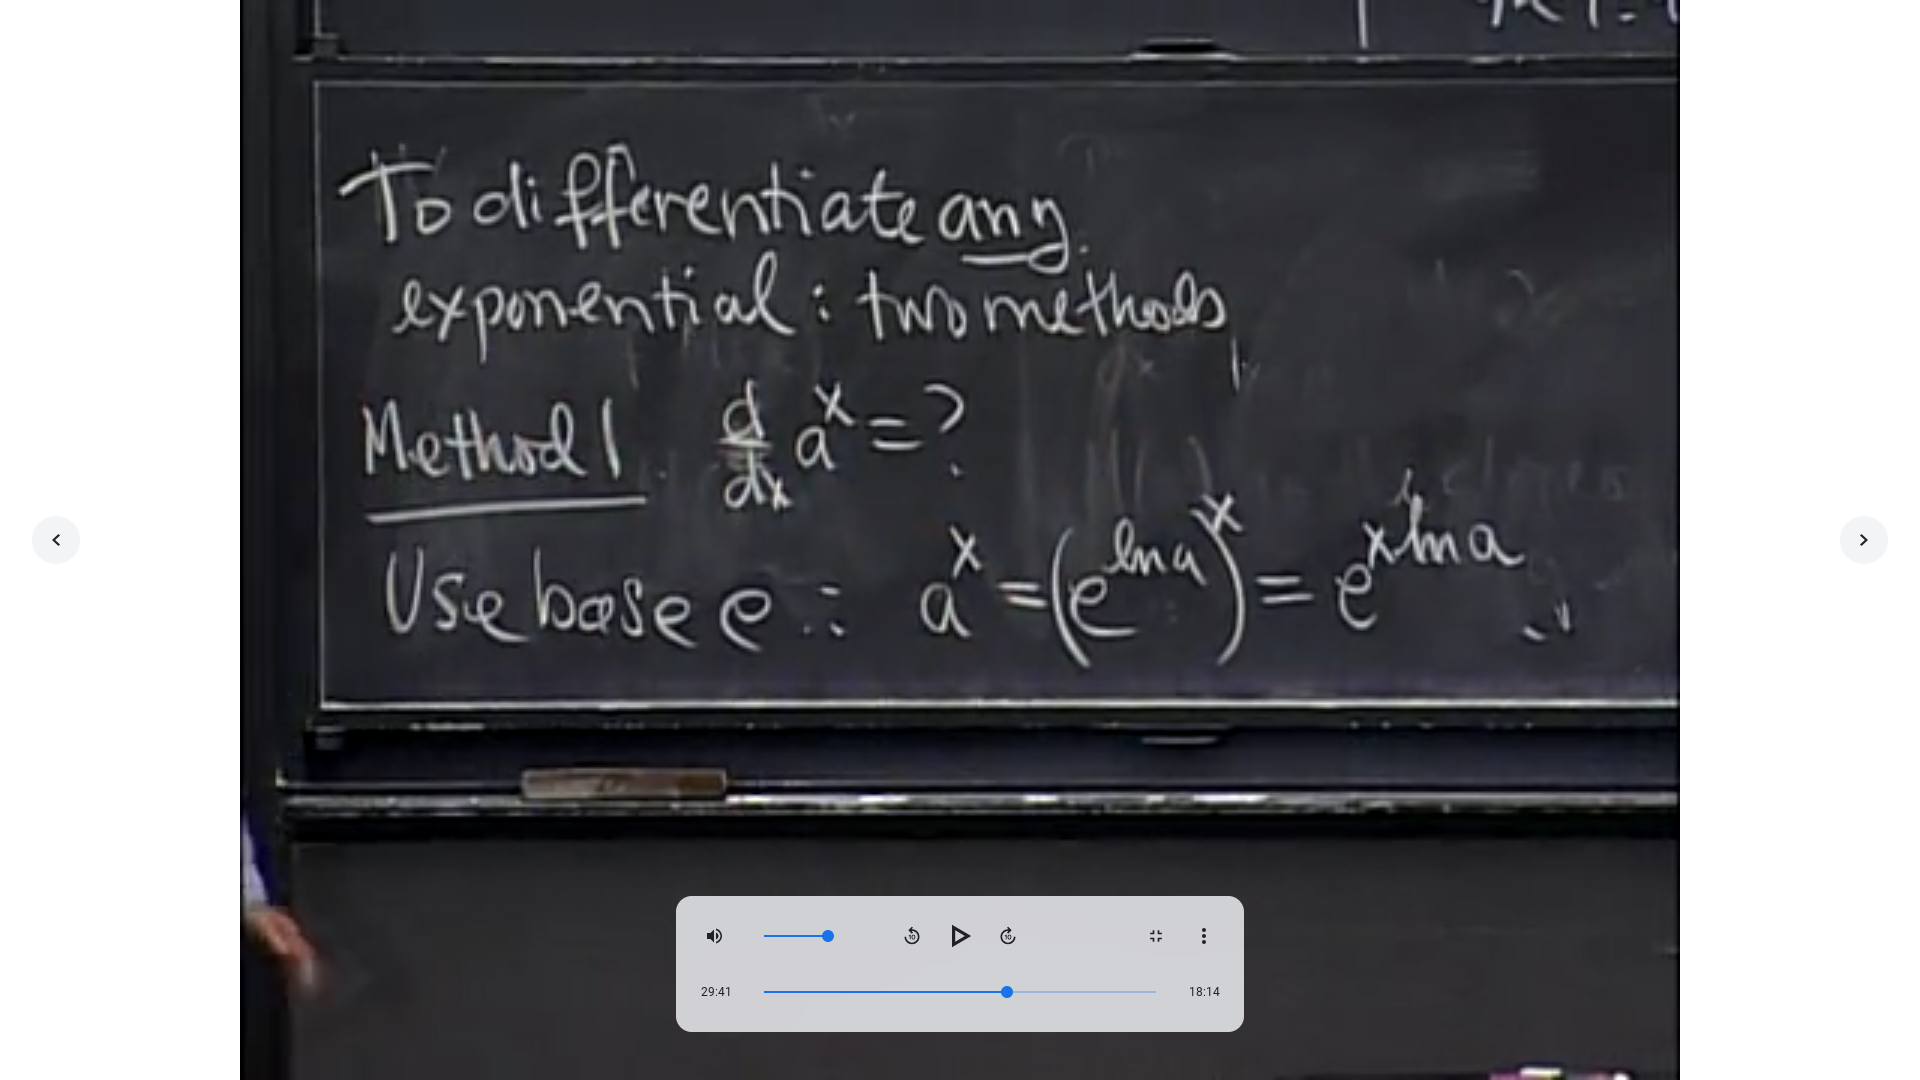 To differentiate any
exponential: two methods
Method 1 d/dx a^x = ?
Use base e: a^x = (e^{ln a})^x = e^{x ln a}
10
10
29:41
18:14